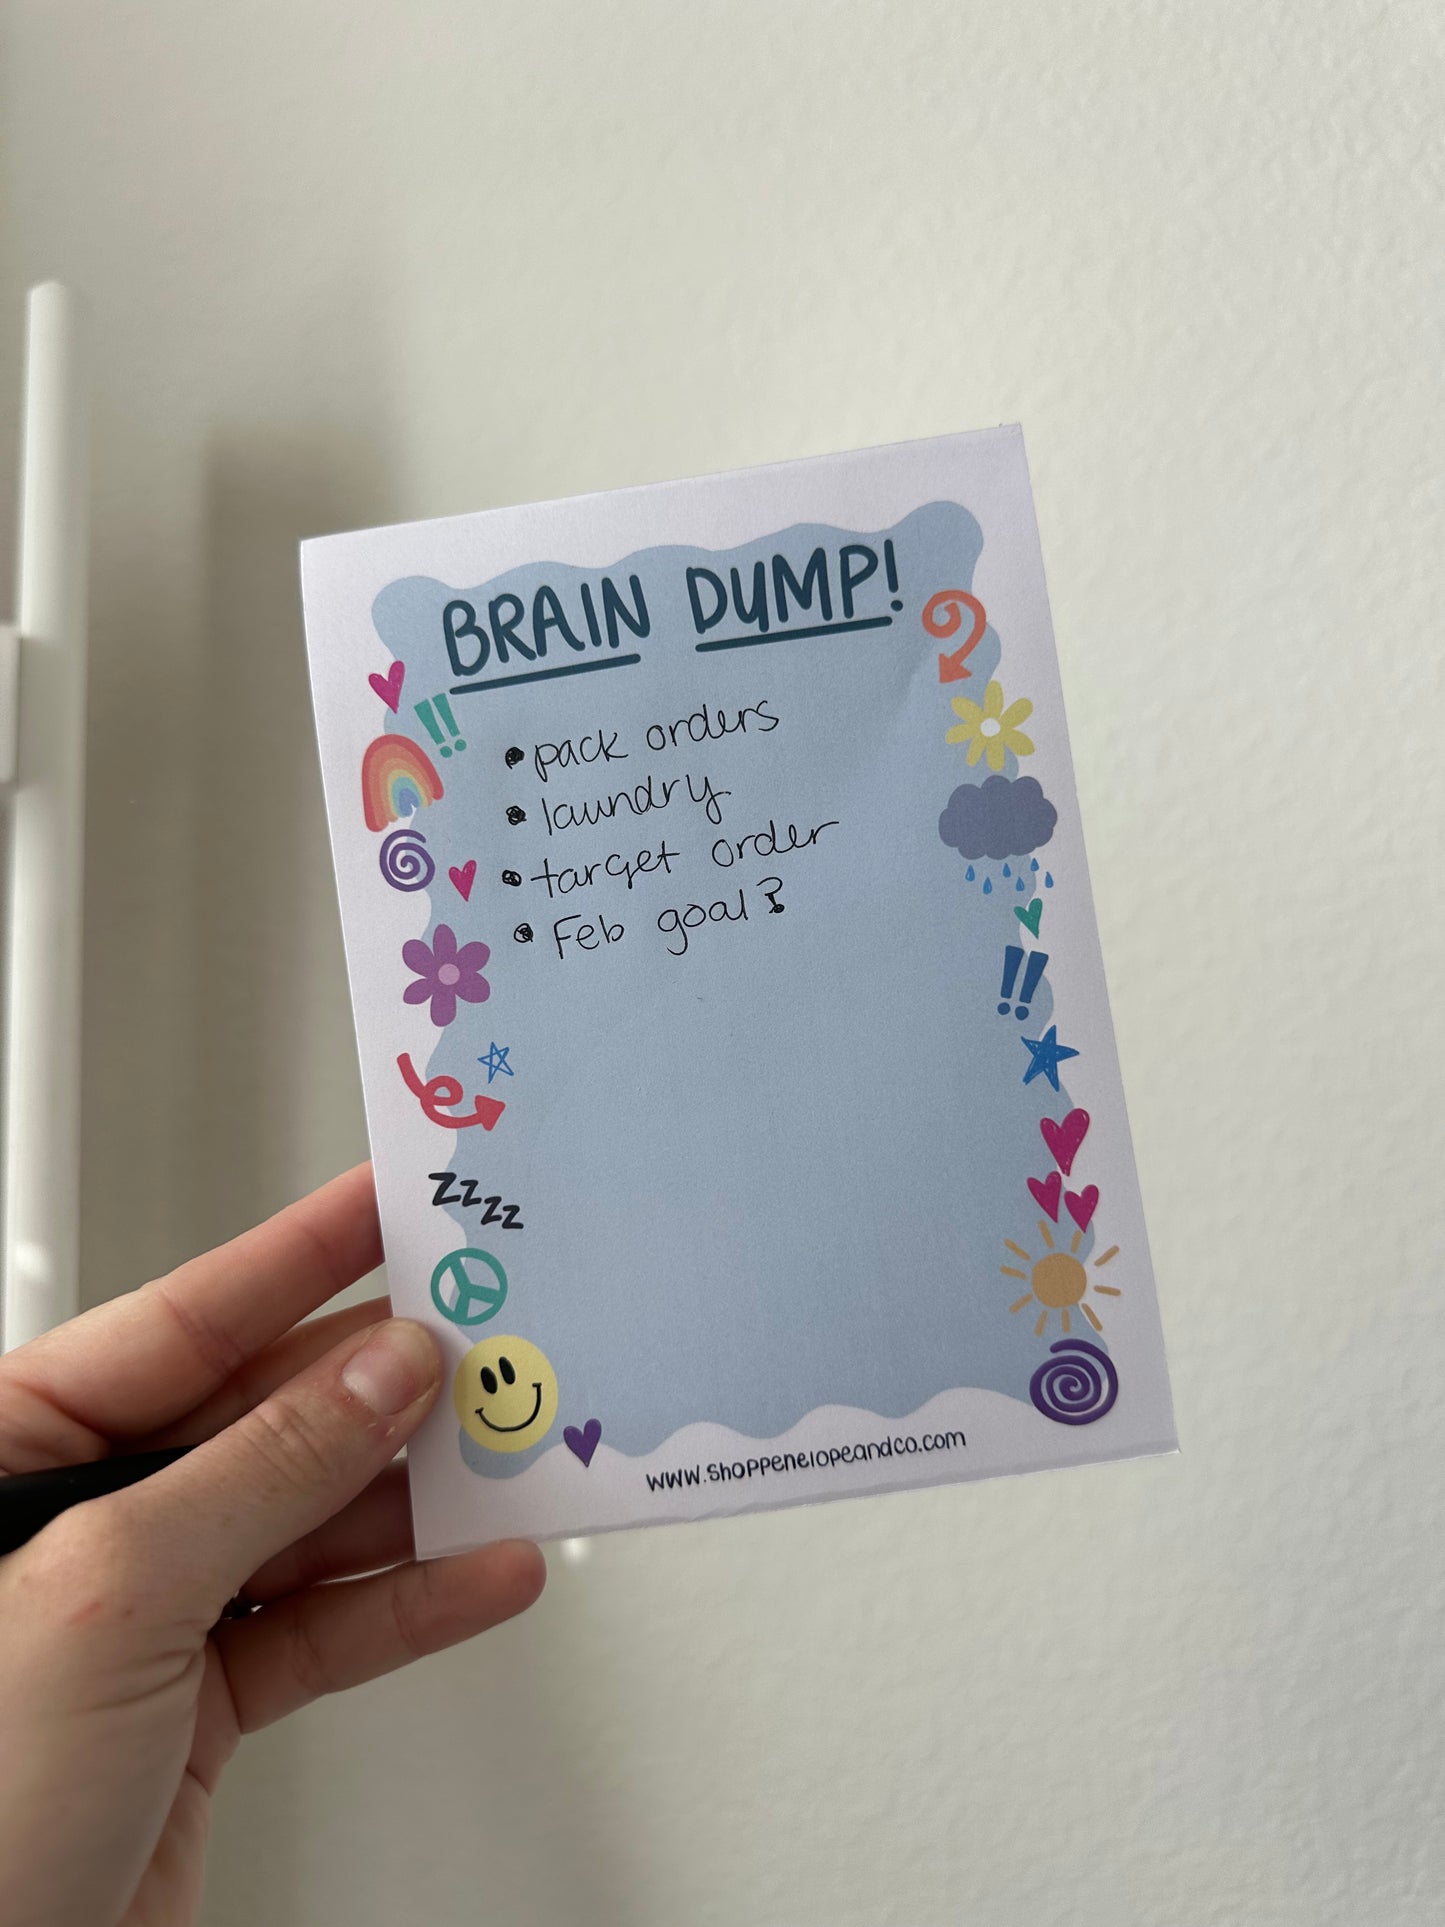 BRAIN DUMP!
• pack orders
• laundry
• target order
• Feb goal?
!!
!!
zzzz
www.shoppenelopeandco.com